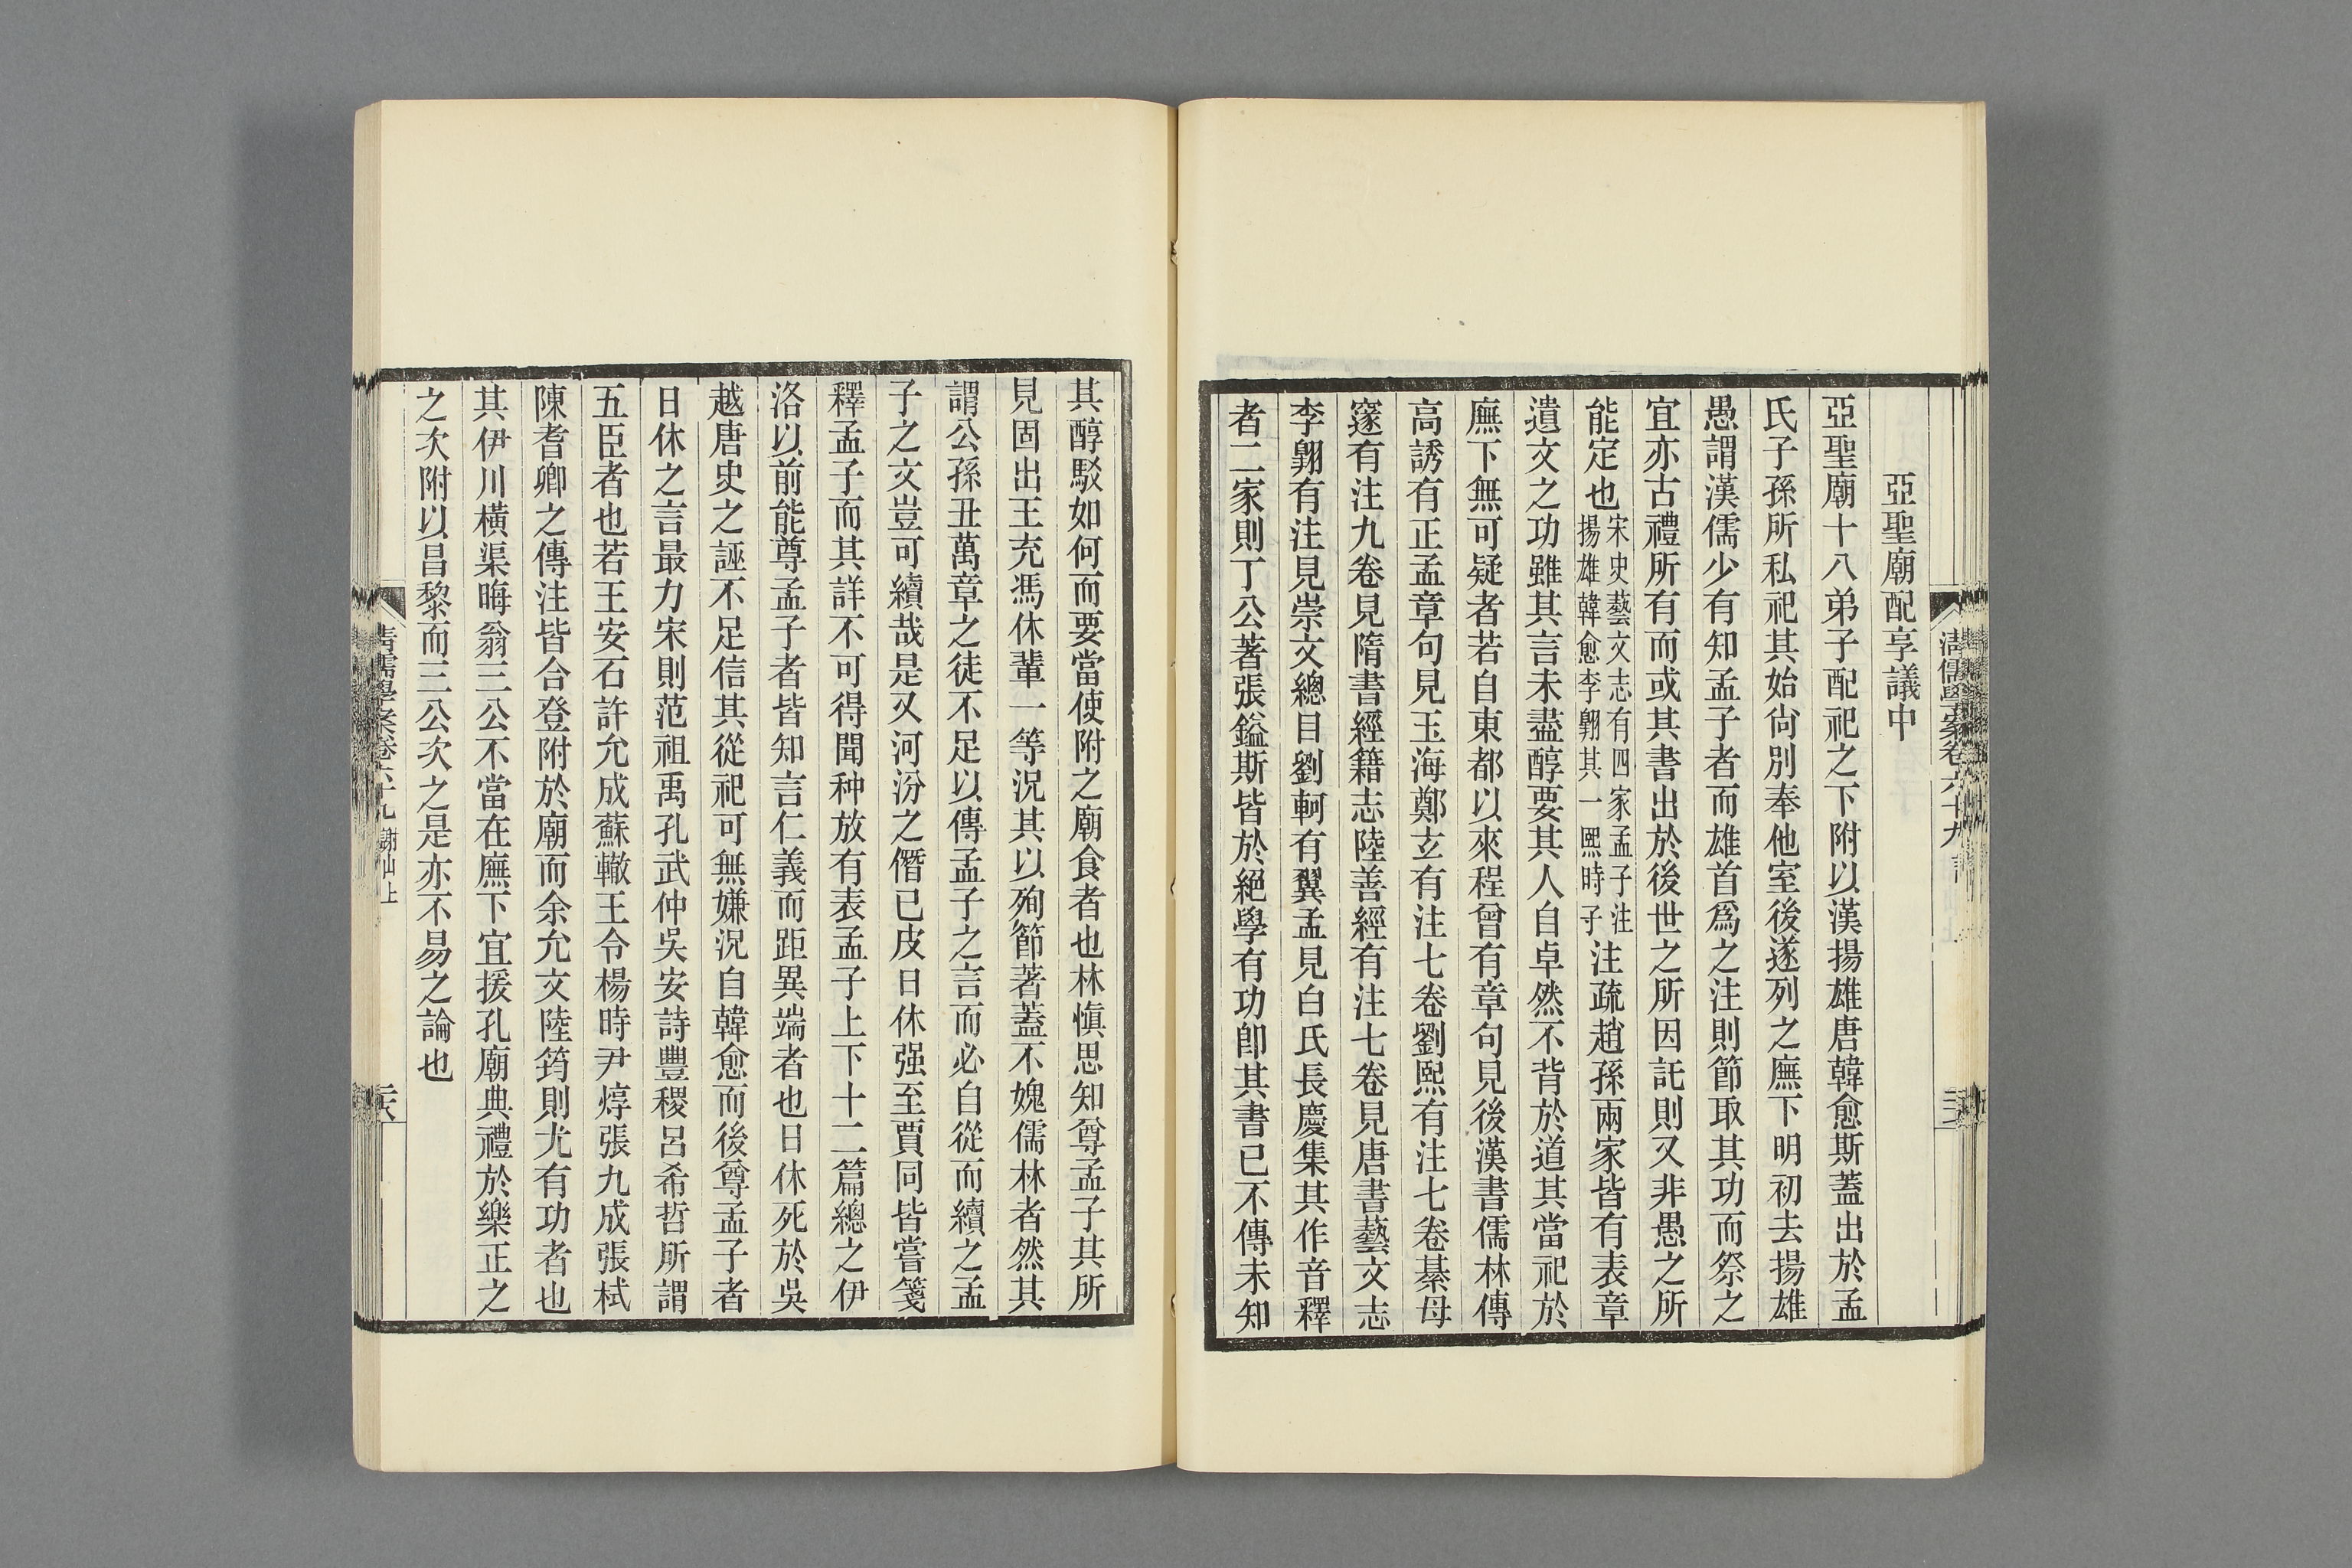 亞聖廟配享議中
亞聖廟十八弟子配祀之下附以漢揚雄唐韓愈斯蓋出於孟
氏子孫所私祀其始尙別奉他室後遂列之廡下明初去揚雄
愚謂漢儒少有知孟子者而雄首爲之注則節取其功而祭之
宜亦古禮所有而或其書出於後世之所因託則又非愚之所
能定也宋史藝文志有四家孟子注揚雄韓愈李翺其一熙時子注疏趙孫兩家皆有表章
遺文之功雖其言未盡醇要其人自卓然不背於道其當祀於
廡下無可疑者若自東都以來程曾有章句見後漢書儒林傳
高誘有正孟章句見玉海鄭玄有注七卷劉熙有注七卷綦毋
邃有注九卷見隋書經籍志陸善經有注七卷見唐書藝文志
李翺有注見崇文總目劉軻有翼孟見白氏長慶集其作音釋
者二家則丁公著張鎰斯皆於絕學有功卽其書已不傳未知
其醇駁如何而要當使附之廟食者也林愼思知尊孟子其所
見固出王充馮休輩一等況其以殉節著蓋不媿儒林者然其
謂公孫丑萬章之徒不足以傳孟子之言而必自從而續之孟
子之文豈可續哉是又河汾之僭已皮日休强至賈同皆嘗箋
釋孟子而其詳不可得聞种放有表孟子上下十二篇總之伊
洛以前能尊孟子者皆知言仁義而距異端者也日休死於吳
越唐史之誣不足信其從祀可無嫌況自韓愈而後尊孟子者
日休之言最力宋則范祖禹孔武仲吳安詩豐稷呂希哲所謂
五臣者也若王安石許允成蘇轍王令楊時尹焞張九成張栻
陳耆卿之傳注皆合登附於廟而余允文陸筠則尤有功者也
其伊川橫渠晦翁三公不當在廡下宜援孔廟典禮於樂正之
之次附以昌黎而三公次之是亦不易之論也
清儒學案卷六十九 謝山上